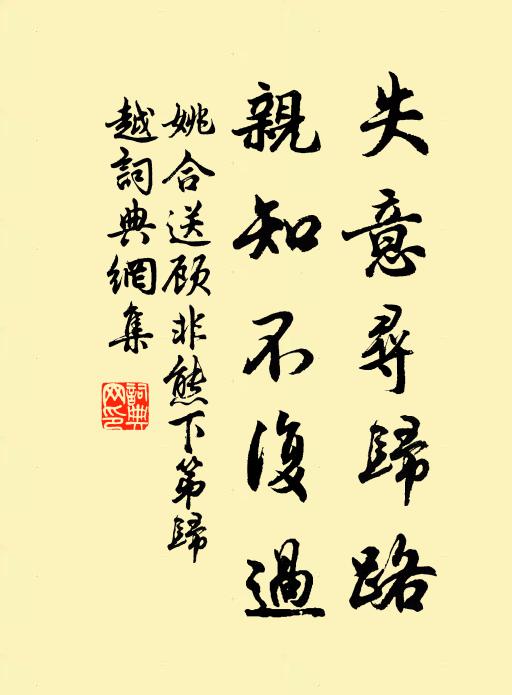 失意尋歸路
親知不復過
姚合送顾非熊下第歸
越詞典網集
詞典
网印